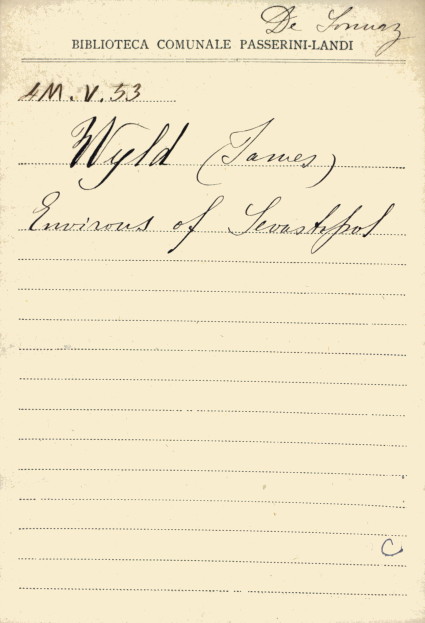 De Sonnaz
BIBLIOTECA COMUNALE PASSERINI-LANDI
4M.V.53
Wyld (James)
Environs of Sevastopol
C